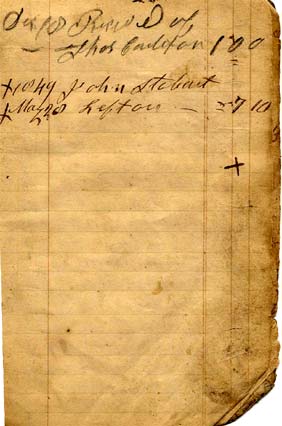 Recd of
Thos Carlton 1 00
+1849 John Stobart
+May 28 Lefton — 7 10
+